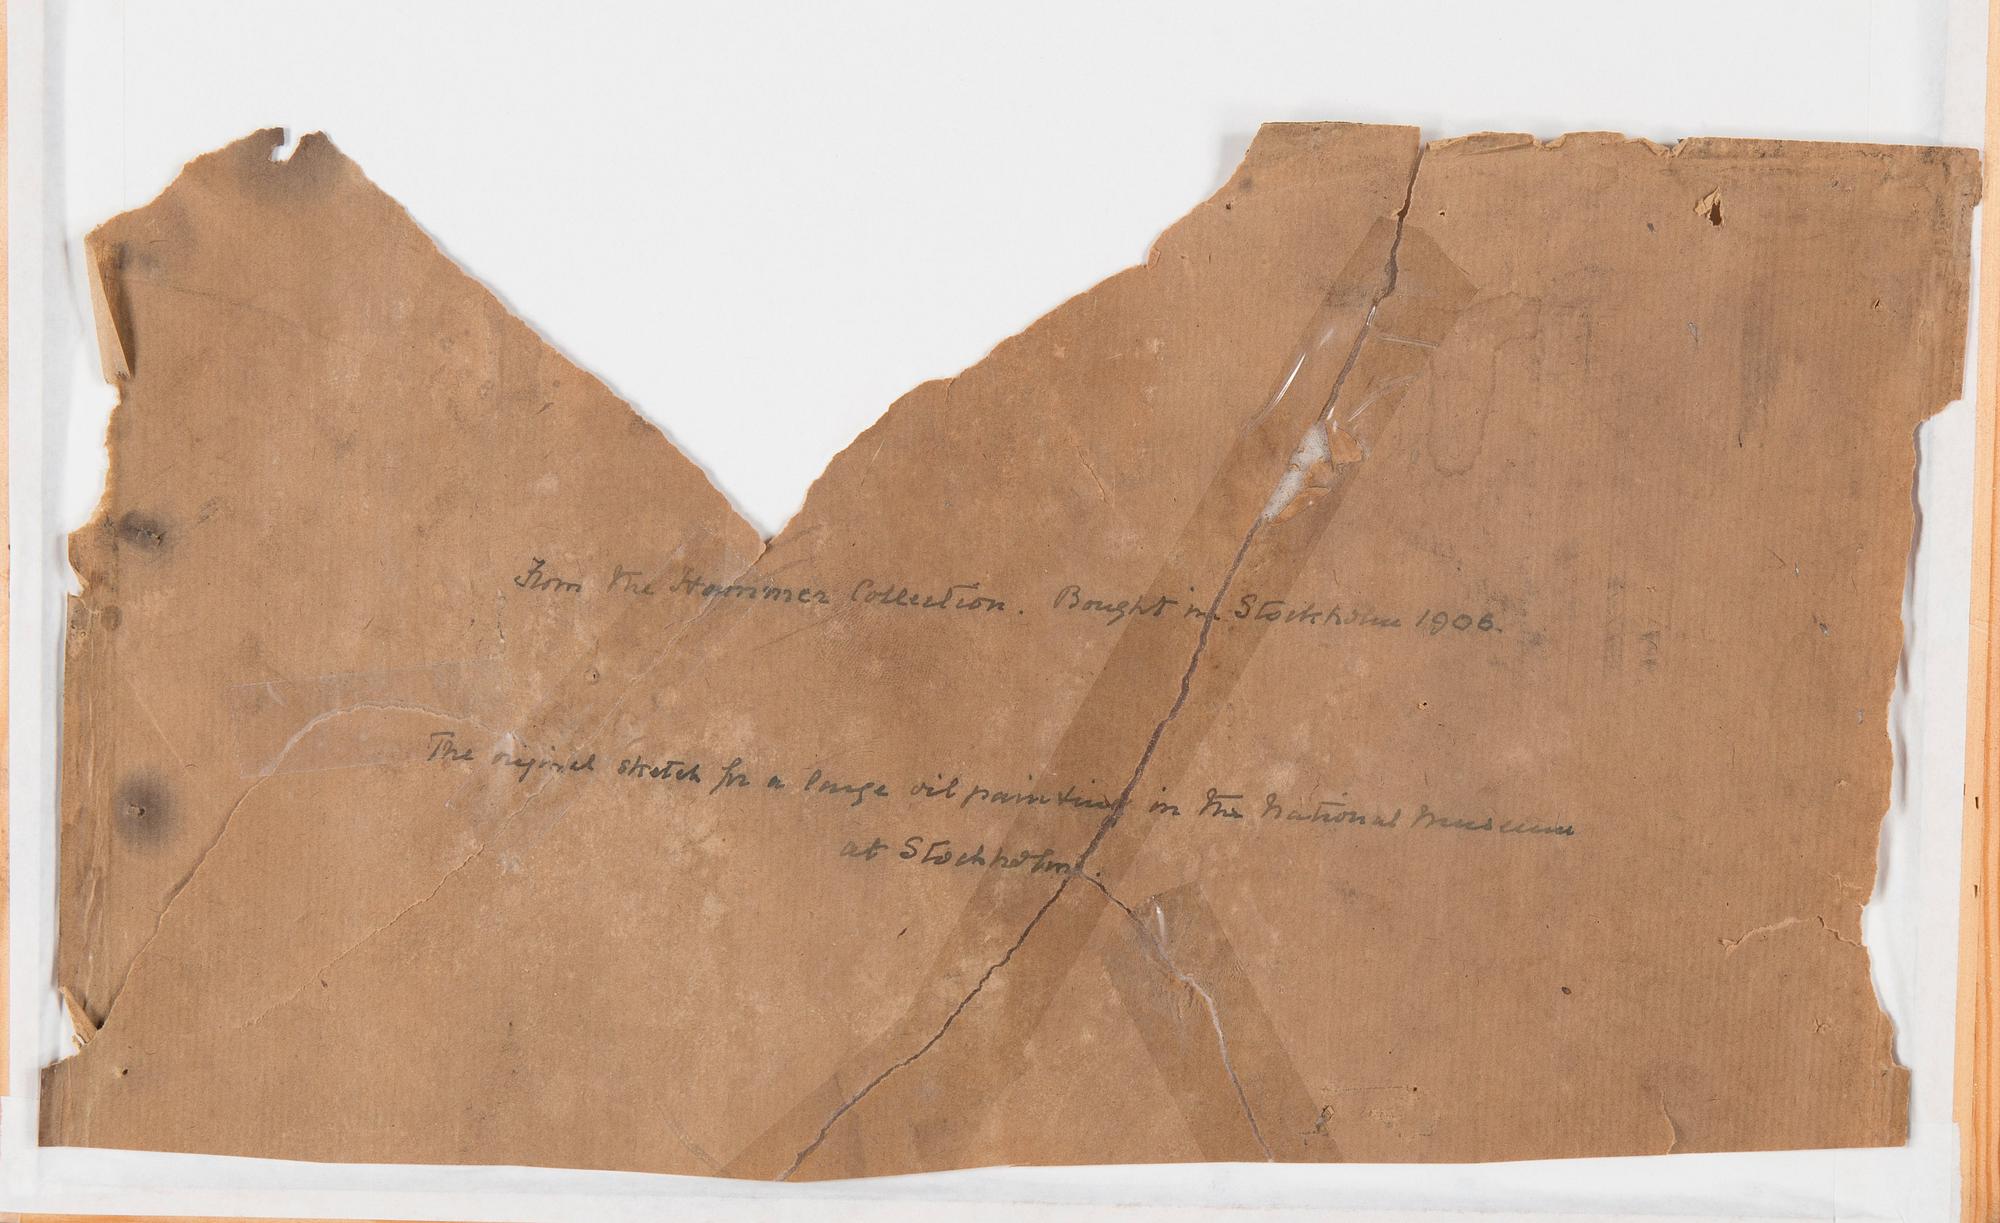 From the Hammer Collection. Bought in Stockholm 1906.
The original sketch for a large oil painting in the National Museum
at Stockholm.